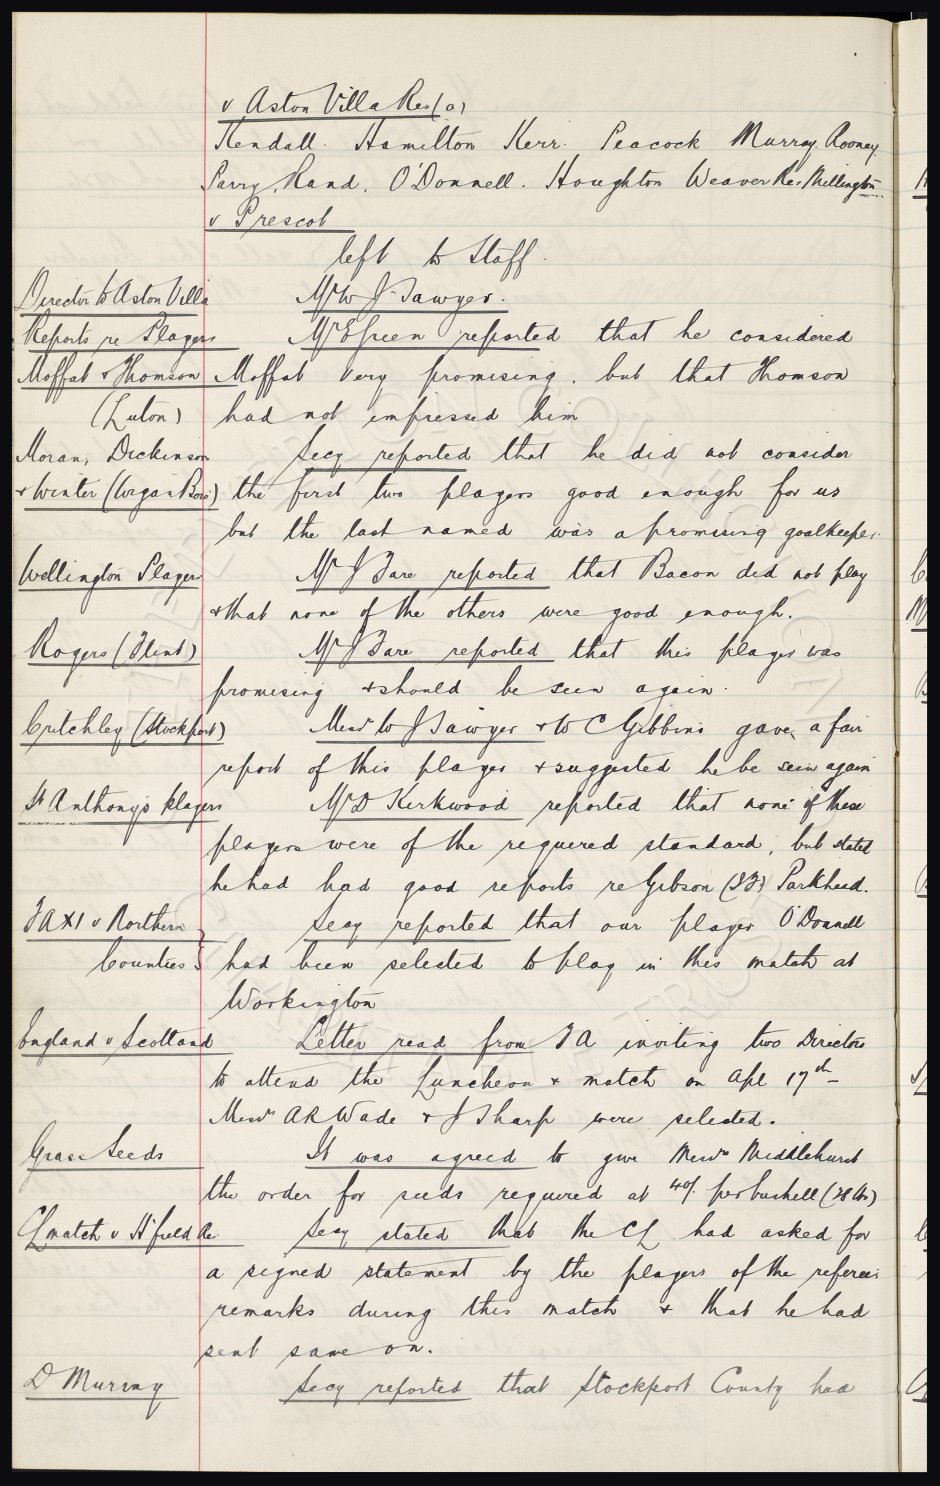 v Aston Villa Res (a)
Kendall. Hamilton Kerr. Peacock Murray. Rooney.
Parry. Rand. O'Donnell. Houghton Weaver Res Millington
v Prescot
left to Staff.
Director to Aston Villa Mr W J Sawyer.
Reports re Players Mr E Green reported that he considered
Moffat & Thomson Moffat very promising. but that Thomson
(Luton) had not impressed him
Moran, Dickinson Secy reported that he did not consider
& Winter (Wigan Boro) the first two players good enough for us
but the last named was a promising goalkeeper.
Wellington Players Mr J Fare reported that Bacon did not play
& that none of the others were good enough.
Rogers (Flint) Mr J Fare reported that this player was
promising & should be seen again.
Critchley (Stockport) Messrs W J Sawyer & W C Gibbins gave a fair
report of this player & suggested he be seen again
St Anthony's players Mr D Kirkwood reported that none of these
players were of the required standard, but stated
he had had good reports re Gibson (IF) Parkhead.
FA XI v Northern Secy reported that our player O'Donnell
Counties had been selected to play in this match at
Workington
England v Scotland Letter read from FA inviting two Directors
to attend the Luncheon & match on Apl 17th
Messrs A R Wade & J Sharp were selected.
Grass Seeds It was agreed to give Messrs Middlehurst
the order for seeds required at 40/. per bushell (28 lbs)
CL match v H'field Re Secy stated that the CL had asked for
a signed statement by the players of the referees
remarks during this match & that he had
sent same on.
D Murray Secy reported that Stockport County had